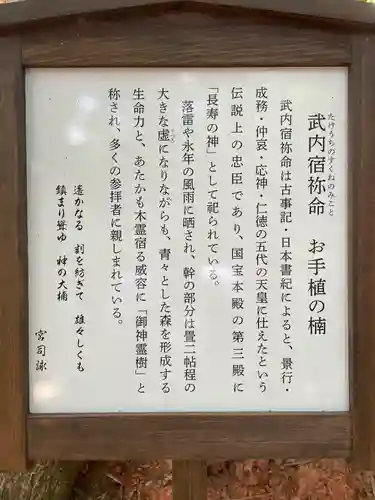 武内宿祢命　お手植の楠
たけうちのすくねのみこと
武内宿祢命は古事記・日本書紀によると、景行・
成務・仲哀・応神・仁徳の五代の天皇に仕えたという
伝説上の忠臣であり、国宝本殿の第三殿に
「長寿の神」として祀られている。
落雷や永年の風雨に晒され、幹の部分は畳二帖程の
大きな虚になりながらも、青々とした森を形成する
生命力と、あたかも木霊宿る威容に「御神霊樹」と
称され、多くの参拝者に親しまれている。
遙かなる　割を紡ぎて　雄々しくも
鎮まり聳ゆ　神の大楠
宮司詠